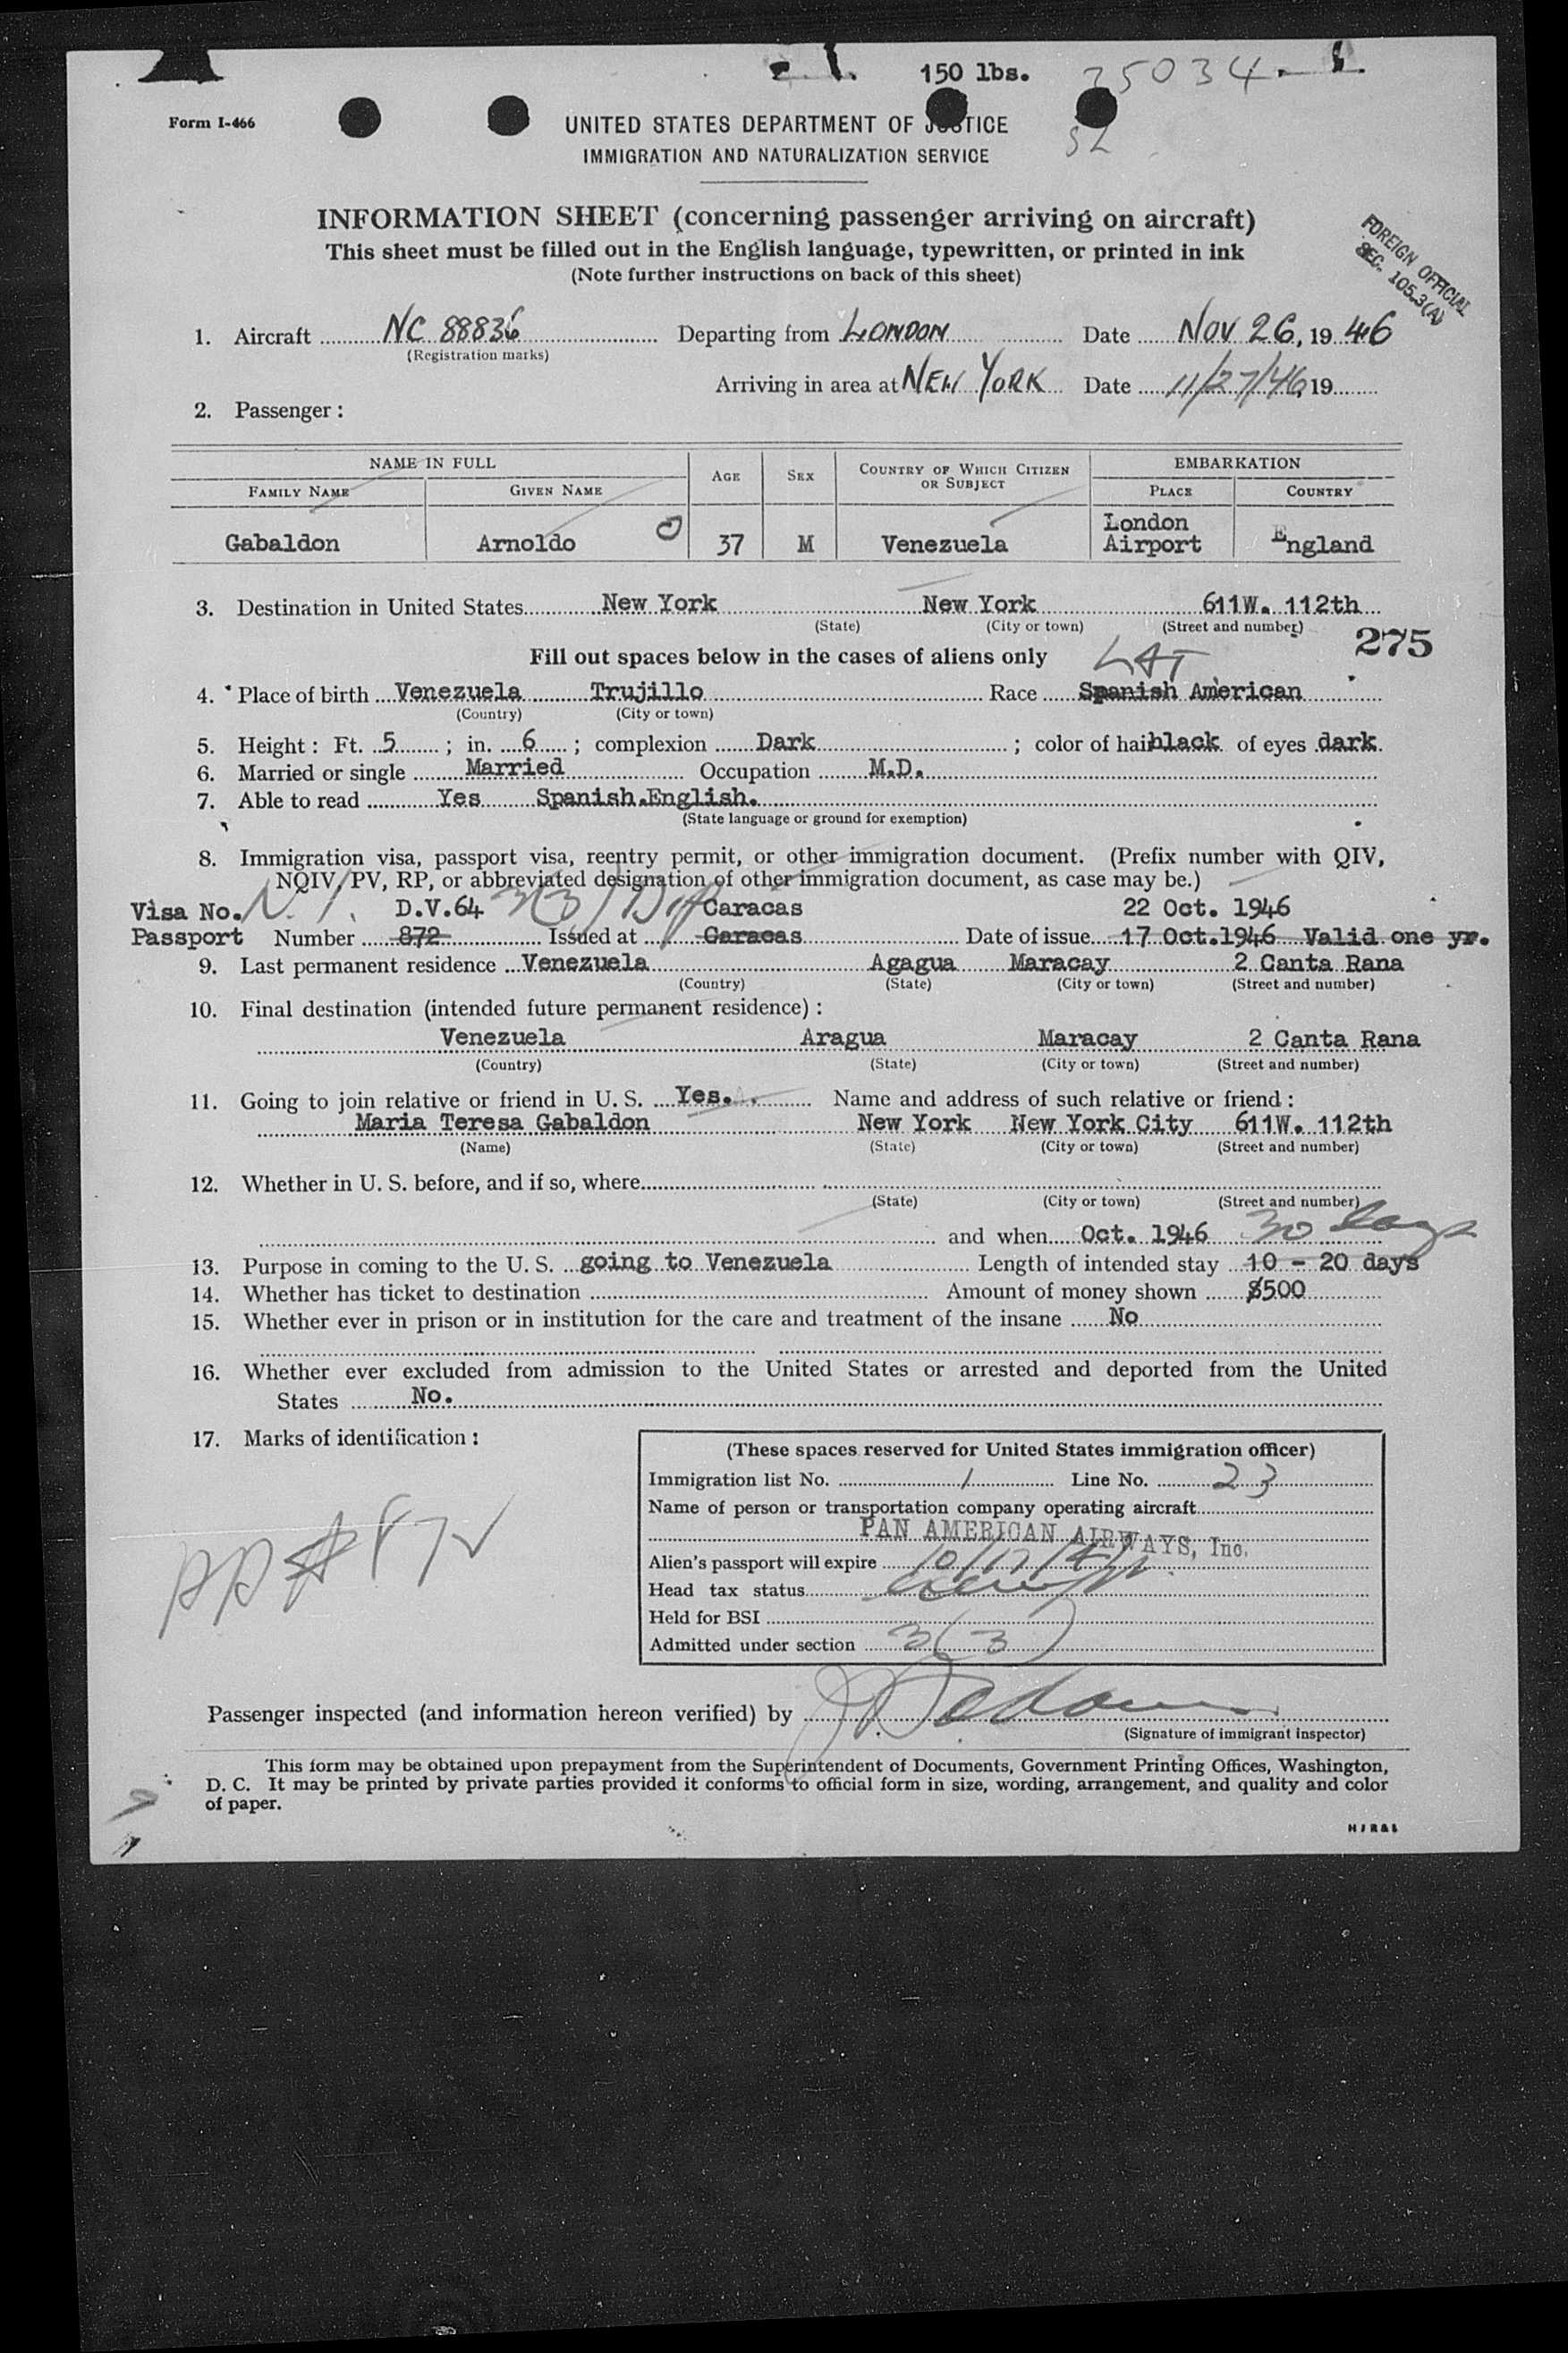 150 lbs. 35034
Form I-466
UNITED STATES DEPARTMENT OF JUSTICE
SL
IMMIGRATION AND NATURALIZATION SERVICE
INFORMATION SHEET (concerning passenger arriving on aircraft)
This sheet must be filled out in the English language, typewritten, or printed in ink
(Note further instructions on back of this sheet)
FOREIGN OFFICIAL
SEC. 105.3(A)
1. Aircraft NC 88836 Departing from LONDON Date NOV 26, 1946
(Registration marks)
Arriving in area at NEW YORK Date 11/27/46, 19
2. Passenger:
NAME IN FULL AGE SEX COUNTRY OF WHICH CITIZEN OR SUBJECT EMBARKATION
FAMILY NAME GIVEN NAME PLACE COUNTRY
Gabaldon Arnoldo 37 M Venezuela London Airport England
3. Destination in United States New York New York 611W. 112th
(State) (City or town) (Street and number)
275
Fill out spaces below in the cases of aliens only LAT
4. Place of birth Venezuela Trujillo Race Spanish American
(Country) (City or town)
5. Height: Ft. 5; in. 6; complexion Dark; color of hair black of eyes dark.
6. Married or single Married Occupation M.D.
7. Able to read Yes Spanish.English.
(State language or ground for exemption)
8. Immigration visa, passport visa, reentry permit, or other immigration document. (Prefix number with QIV,
NQIV, PV, RP, or abbreviated designation of other immigration document, as case may be.)
Visa No. D.V.64 3(3) Dip Caracas 22 Oct. 1946
Passport Number 872 Issued at Caracas Date of issue 17 Oct.1946 Valid one yr.
9. Last permanent residence Venezuela Agagua Maracay 2 Canta Rana
(Country) (State) (City or town) (Street and number)
10. Final destination (intended future permanent residence):
Venezuela Aragua Maracay 2 Canta Rana
(Country) (State) (City or town) (Street and number)
11. Going to join relative or friend in U. S. Yes. Name and address of such relative or friend:
Maria Teresa Gabaldon New York New York City 611W. 112th
(Name) (State) (City or town) (Street and number)
12. Whether in U. S. before, and if so, where
(State) (City or town) (Street and number)
and when Oct. 1946 30 days
13. Purpose in coming to the U. S. going to Venezuela Length of intended stay 10 - 20 days
14. Whether has ticket to destination Amount of money shown $500
15. Whether ever in prison or in institution for the care and treatment of the insane No
16. Whether ever excluded from admission to the United States or arrested and deported from the United
States No.
17. Marks of identification:
(These spaces reserved for United States immigration officer)
Immigration list No. 1 Line No. 23
Name of person or transportation company operating aircraft
PAN AMERICAN AIRWAYS, Inc.
PP # 872
Alien's passport will expire 10/17/47
Head tax status
Held for BSI
Admitted under section 3(3)
Passenger inspected (and information hereon verified) by
(Signature of immigrant inspector)
This form may be obtained upon prepayment from the Superintendent of Documents, Government Printing Offices, Washington,
D. C. It may be printed by private parties provided it conforms to official form in size, wording, arrangement, and quality and color
of paper.